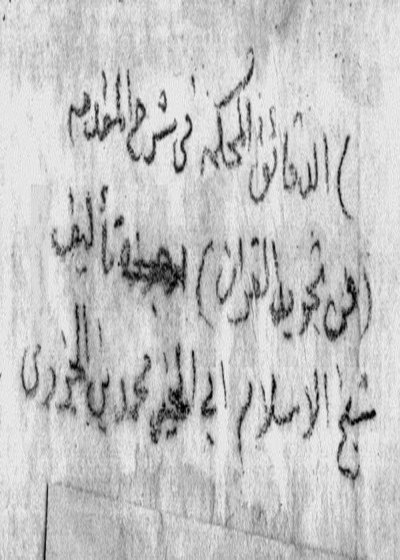 ) الدقائق المحكمة في شرح المقدمة
(في تجويد القرآن) تأليف
شيخ الاسلام ابي الخير محمد بن الجزري